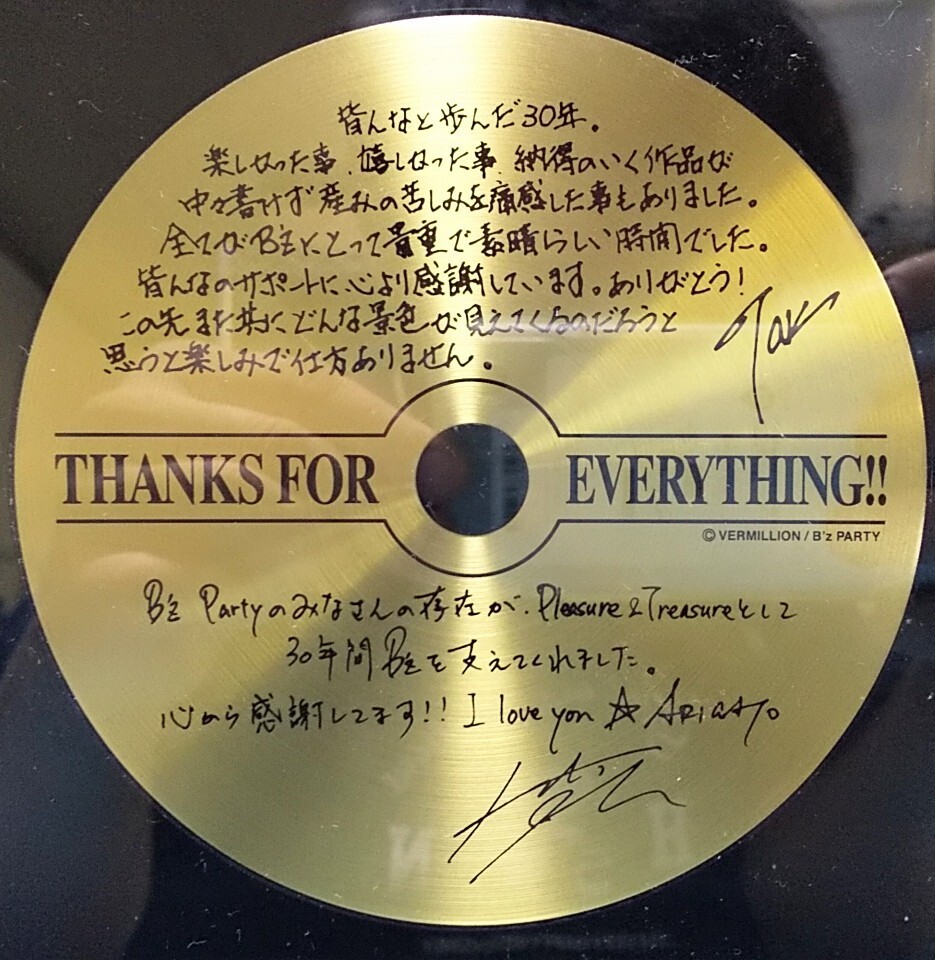 皆んなと歩んだ30年。
楽しかった事、嬉しかった事、納得のいく作品が
中々書けず産みの苦しみを痛感した事もありました。
全てがB'zにとって貴重で素晴らしい時間でした。
皆んなのサポートに心より感謝しています。ありがとう!
この先また共にどんな景色が見えてくるのだろうと
思うと楽しみで仕方ありません。
Tak
THANKS FOR EVERYTHING!!
© VERMILLION / B'z PARTY
B'z Partyのみなさんの存在が、Pleasure & Treasureとして
30年間B'zを支えてくれました。
心から感謝してます!! I love you ☆ ARIGATO